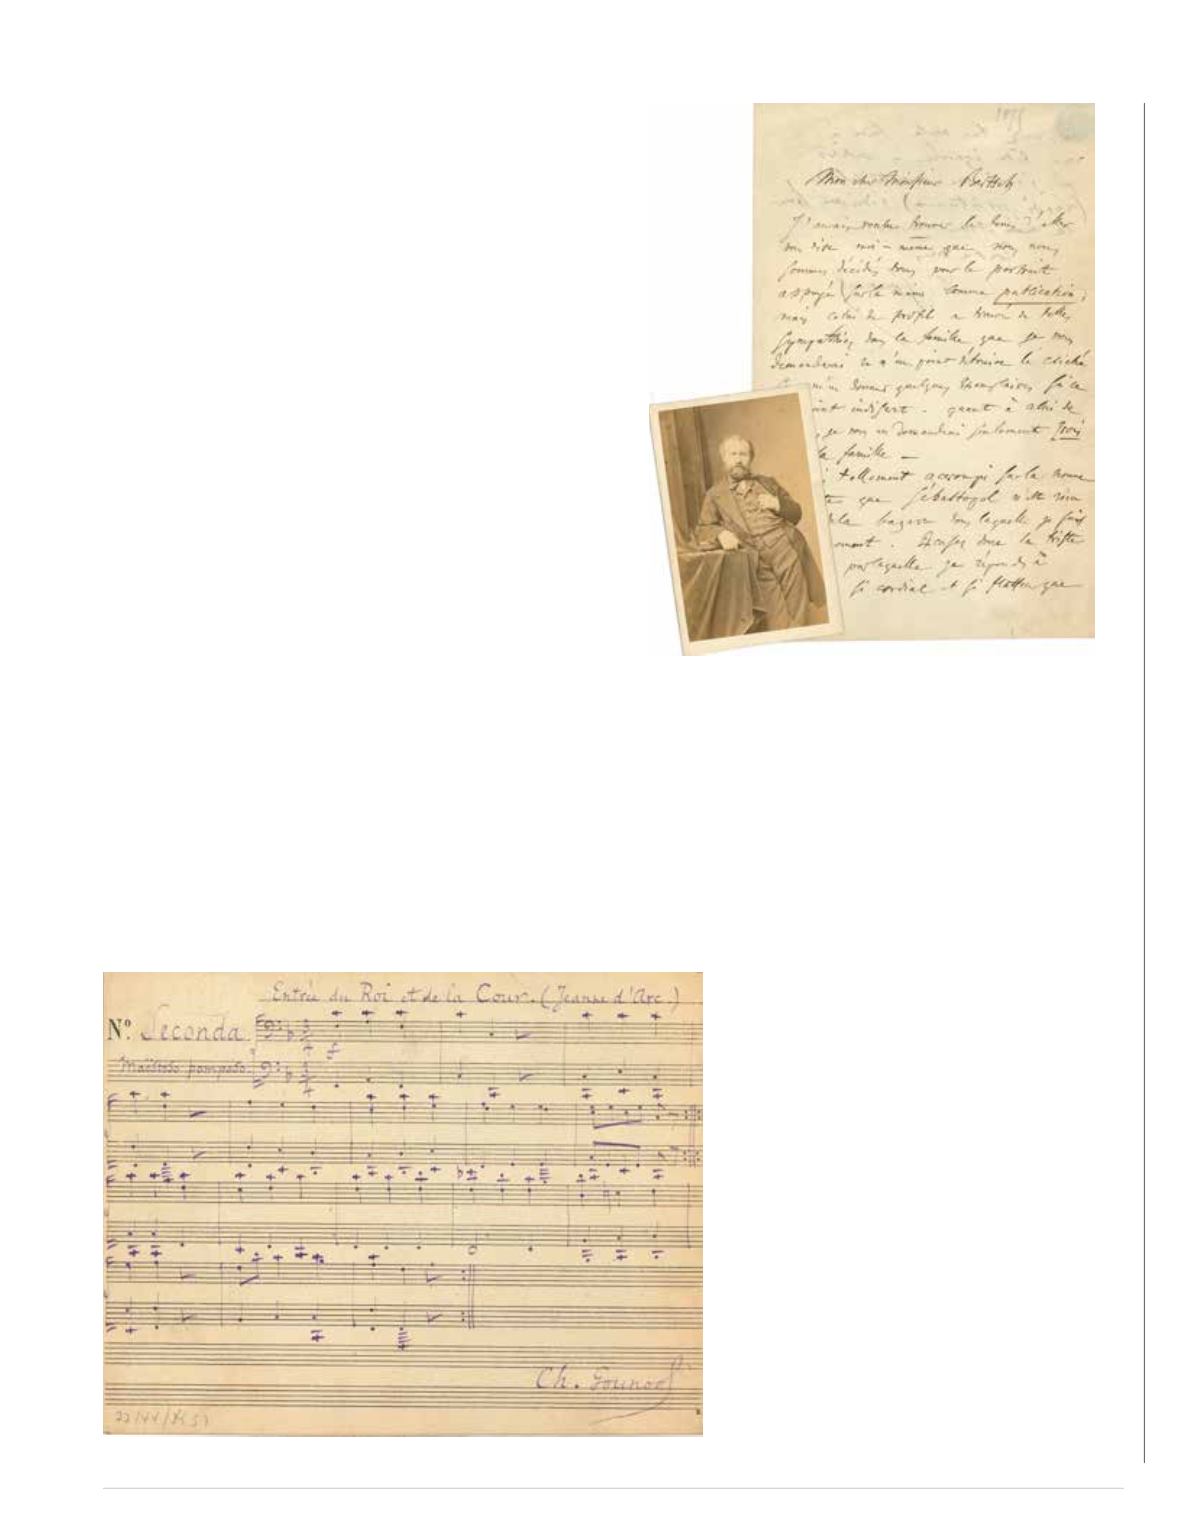 Mon cher Monsieur Bertsch
J'aurais voulu trouver le tems d'aller
vous dire moi-même que nous nous
sommes décidés tous pour le portrait
appuyé sur la main comme publication;
mais celui de profil a trouvé de telles
sympathies dans la famille que je vous
demanderai de n'en point détruire le cliché
m'en donner quelques exemplaires si ce
point indiscret. quant à celui de
, je vous en demanderai seulement trois
la famille —
tellement accroupi sur la
que Sébastopol n'est rien
de la bagarre dans laquelle je suis
moment. Excusez donc la triste
par laquelle je réponds à
si cordial et si flatteur que
Entrée du Roi et de la Cour. (Jeanne d'Arc.)
Nº. Seconda.
Maëstoso pomposo.
Ch. Gounod